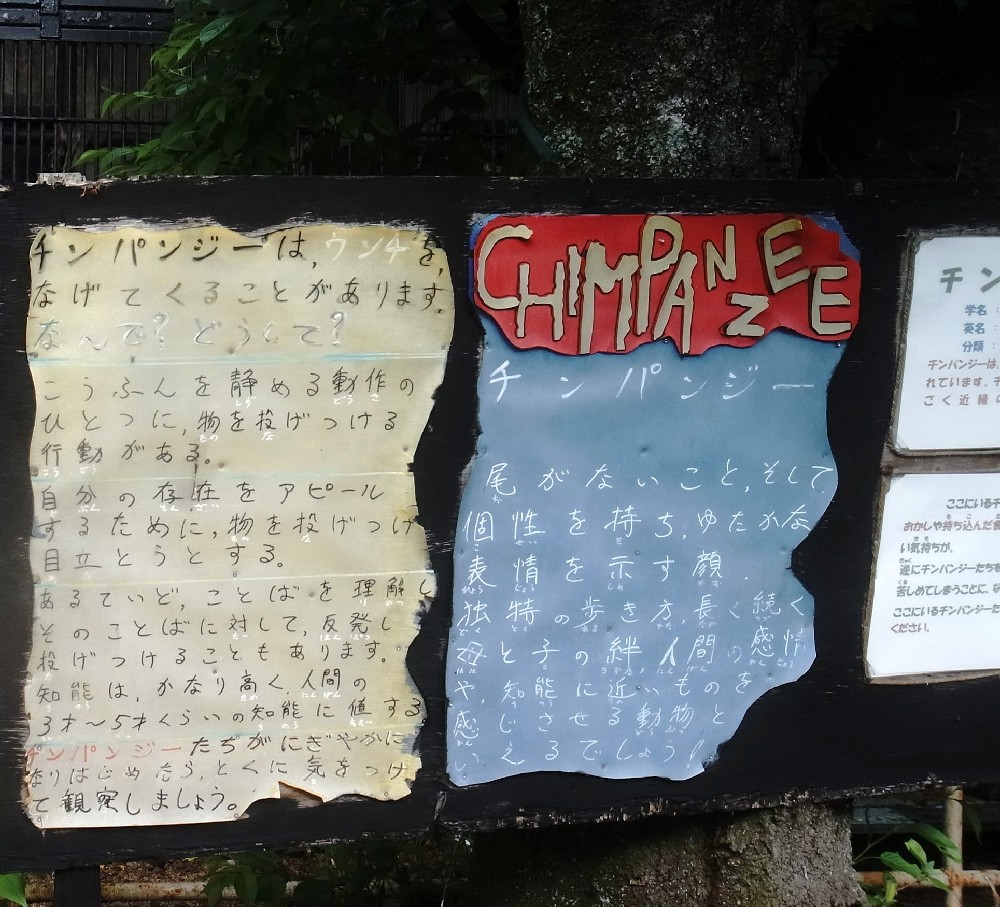 チンパンジーは、ウンチを、
なげてくることがあります。
なんで？どうして？
こうふんを静める動作の
ひとつに、物を投げつける
行動がある。
自分の存在をアピール
するために、物を投げつけ
目立とうとする。
あるていど、ことばを理解し
そのことばに対して、反発し
投げつけることもあります。
知能は、かなり高く、人間の
3才〜5才くらいの知能に値する
チンパンジーたちがにぎやかに
なりはじめたら、とくに気をつけ
て観察しましょう。
CHIMPANZEE
チンパンジー
尾がないこと、そして
個性を持ち、ゆたかな
表情を示す顔、
独特の歩き方、長く続く
母と子の絆、人間の感情
や、知能に近いものを
感じさせる動物と
いえるでしょう！
チン
学名：
英名：
分類：
チンパンジーは、
れています。チ
ごく近縁の
ここにいるチ
おかしや持ち込んだ食
い気持ちが、
逆にチンパンジーたちを
苦しめてしまうことに、
ここにいるチンパンジーた
ください。